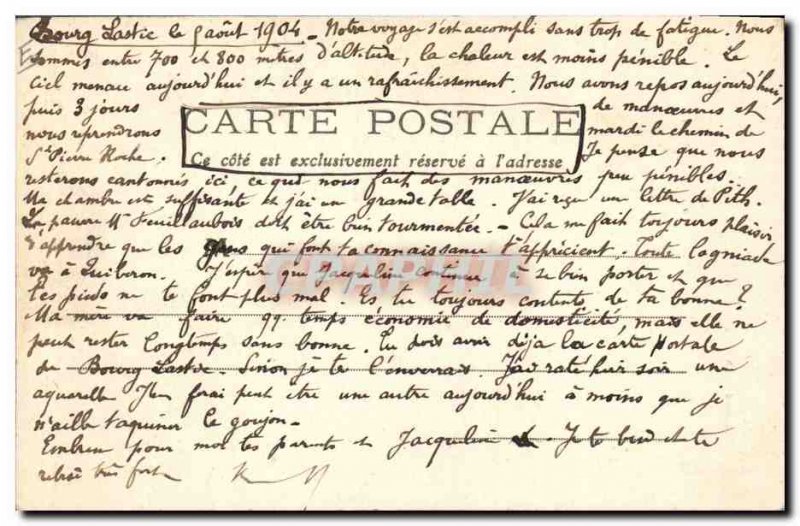 Bourg Lastic le 5 août 1904 - Notre voyage s'est accompli sans trop de fatigue. Nous
sommes entre 700 et 800 mètres d'altitude, la chaleur est moins pénible. Le
ciel menace aujourd'hui et il y a un rafraîchissement. Nous avons repos aujourd'hui,
puis 3 jours de manœuvres et
CARTE POSTALE
nous reprendrons mardi le chemin de
Ce côté est exclusivement réservé à l'adresse
St Pierre Roche. Je pense que nous
resterons cantonnés ici ce qui nous fait des manœuvres peu pénibles.
Ma chambre est suffisante et j'ai un grande table. J'ai reçu une lettre de Pith.
La pauvre Me Feuillaubois doit être bien tourmentée. - Cela me fait toujours plaisir
d'apprendre que les gens qui font ta connaissance t'apprécient. Toute
va à Quiberon. J'espère que Jacqueline continue à se bien porter et que
tes pieds ne te font plus mal. Es tu toujours contente de ta bonne ?
Ma mère va faire qq. temps économie de domesticité, mais elle ne
peut rester longtemps sans bonne. Tu dois avoir déjà la carte postale
de Bourg Lastic. Sinon je te l'enverrais. J'ai raté hier soir une
aquarelle. J'en ferai peut être une autre aujourd'hui à moins que je
n'aille taquiner le goujon -
Embrasse pour moi tes parents et Jacqueline. Je te
très fort